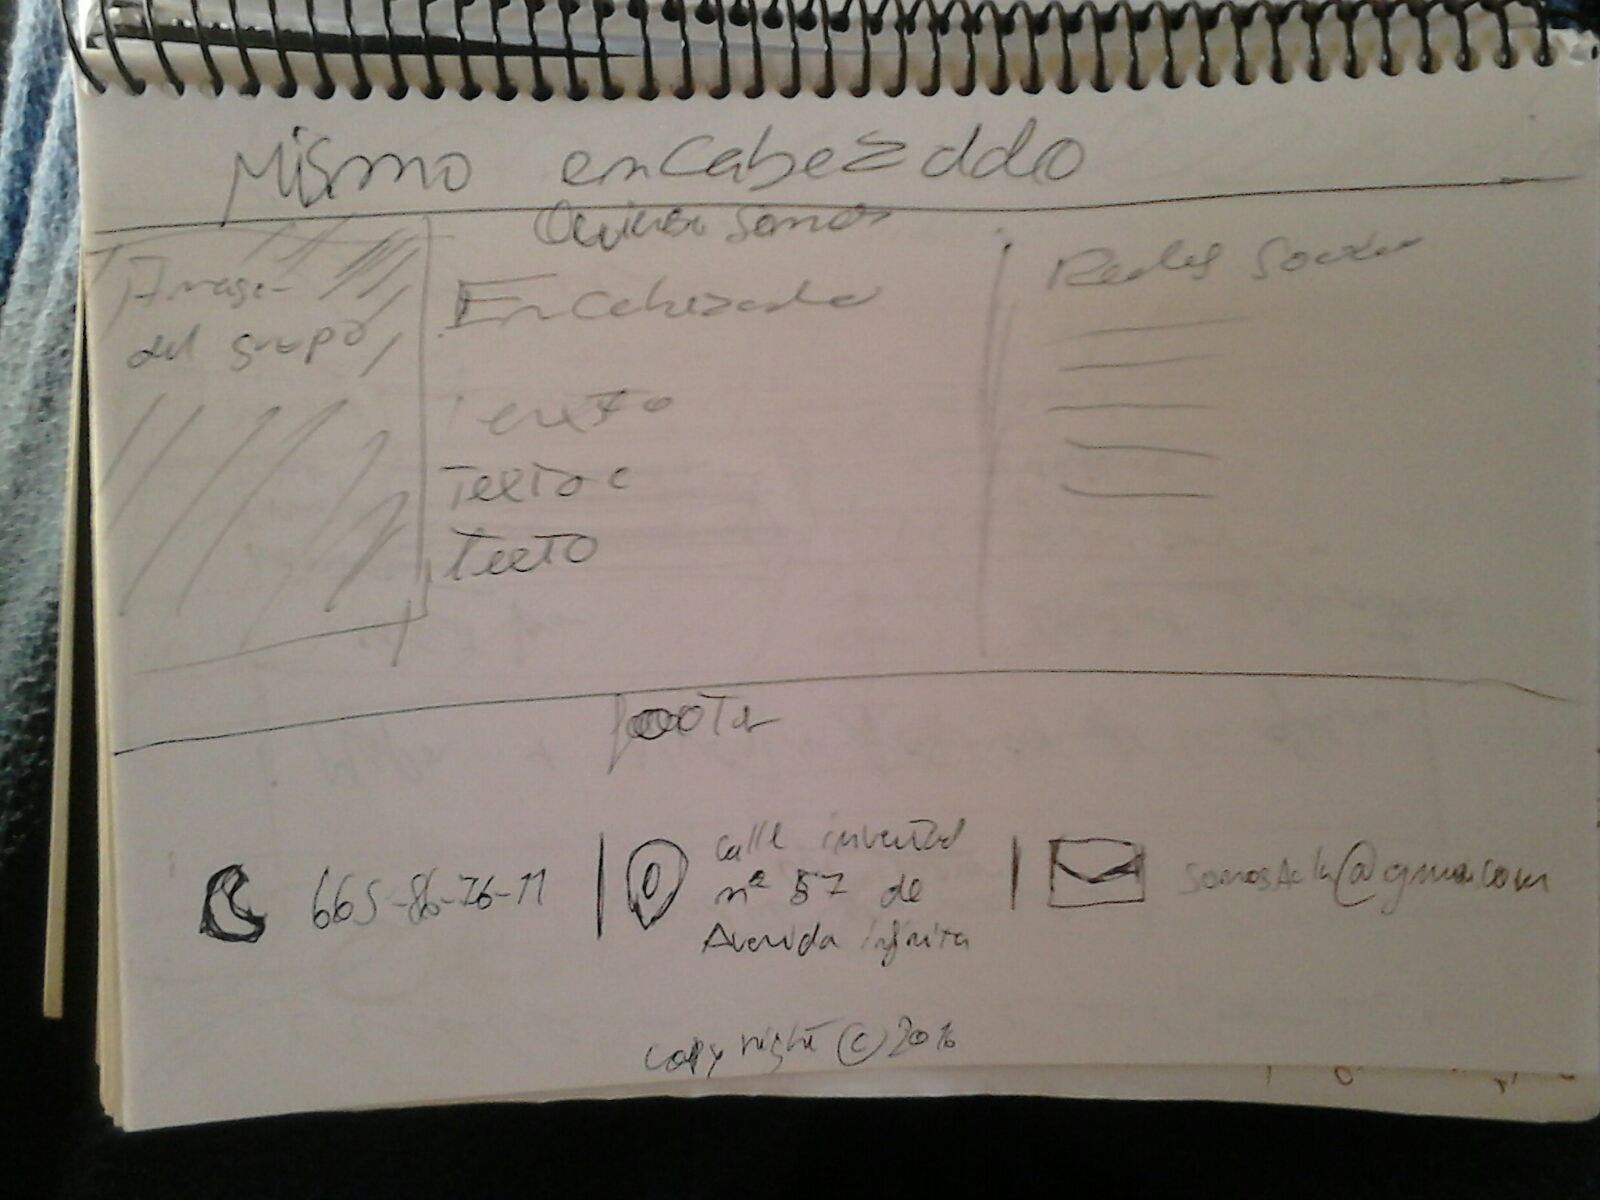 Mismo encabezado
Quienes somos
Imagen
del grupo
Encabezado
Texto
Texto
Texto
Redes Sociales
footer
665-86-76-11
calle
nº 57 de
Avenida infinita
copyright © 2016